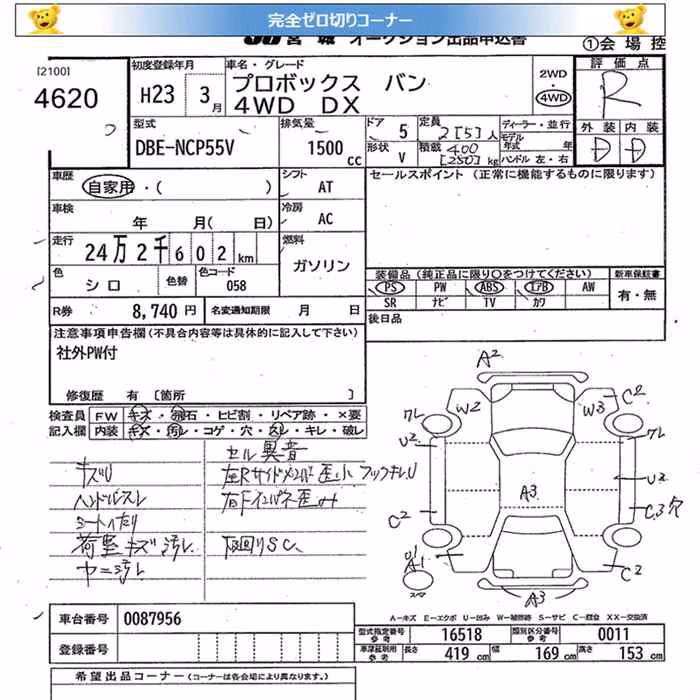 完全ゼロ切りコーナー
JU宮城 オークション出品申込書
①会場控
[2100]
4620
初度登録年月
H23 3月
車名・グレード
プロボックス バン
4WD DX
2WD
4WD
評価点
R
外装 内装
D D
型式
DBE-NCP55V
排気量
1500cc
ドア 5
形状 V
定員 2[5]人
積載 400[250]kg
ディーラー・並行
モデル年式 年
ハンドル 左・右
車歴
自家用・( )
シフト AT
セールスポイント (正常に機能するものに限ります)
車検
年 月( 日)
冷房 AC
走行
24万2千602km
燃料 ガソリン
色 シロ 色替 色コード 058
装備品 (純正品に限り○をつけてください)
新車保証書
PS PW ABS エアB AW
SR ナビ TV カワ
有・無
R券 8,740円 名変通知期限 月 日
後日品
注意事項申告欄 (不具合内容等は具体的に記入して下さい)
社外PW付
修復歴 有 [箇所 ]
検査員 FW キズ・飛石・ヒビ割・リペア跡・×要
記入欄 内装 キズ・汚れ・コゲ・穴・凹レ・キレ・破レ
キズU
ハンドルスレ
荷室キズ汚レ
ヤニ汚レ
セル異音
下回りSC
A2
W2 W3 C2
クレ クレ
U2 U2
A3
C2 C3穴
U1
A1
C2
スペア
A3
A-キズ E-エクボ U-凹み W-補修跡 S-サビ C-腐食 XX-交換済
車台番号 0087956
登録番号
型式指定番号 参考 16518 類別区分番号 参考 0011
車庫証明用 参考 長さ 419cm 幅 169cm 高さ 153cm
希望出品コーナー (コーナーは各会場により異なります。)